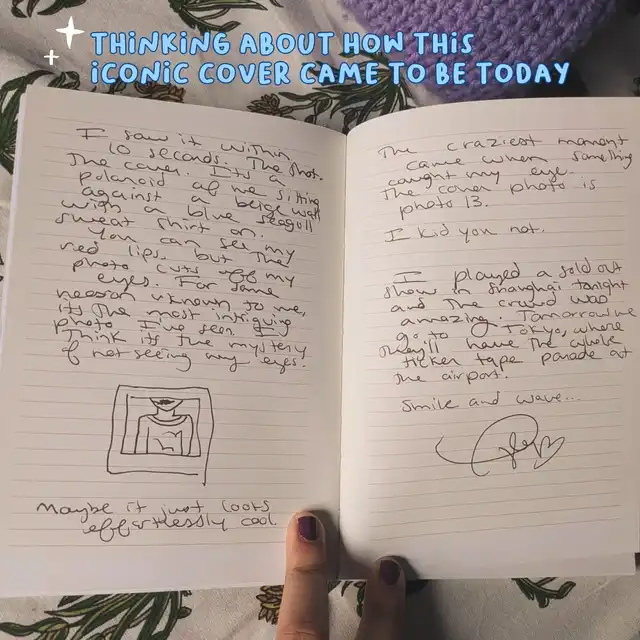 THINKING ABOUT HOW THIS
ICONIC COVER CAME TO BE TODAY
I saw it within
10 seconds. The shot.
The cover. It's a
polaroid of me sitting
against a beige wall
with a blue seagull
sweat shirt on.
You can see my
red lips, but the
photo cuts off my
eyes. For some
reason uknown to me,
it's the most intriguing
photo I've seen. I
think it's the mystery
of not seeing my eyes.
Maybe it just looks
effortlessly cool.
The craziest moment
came when something
caught my eye.
The cover photo is
photo 13.
I kid you not.
I played a sold out
show in Shanghai tonight
and the crowd was
amazing. Tomorrow we
go to Tokyo, where
they'll have the whole
ticker tape parade at
the airport.
Smile and wave...